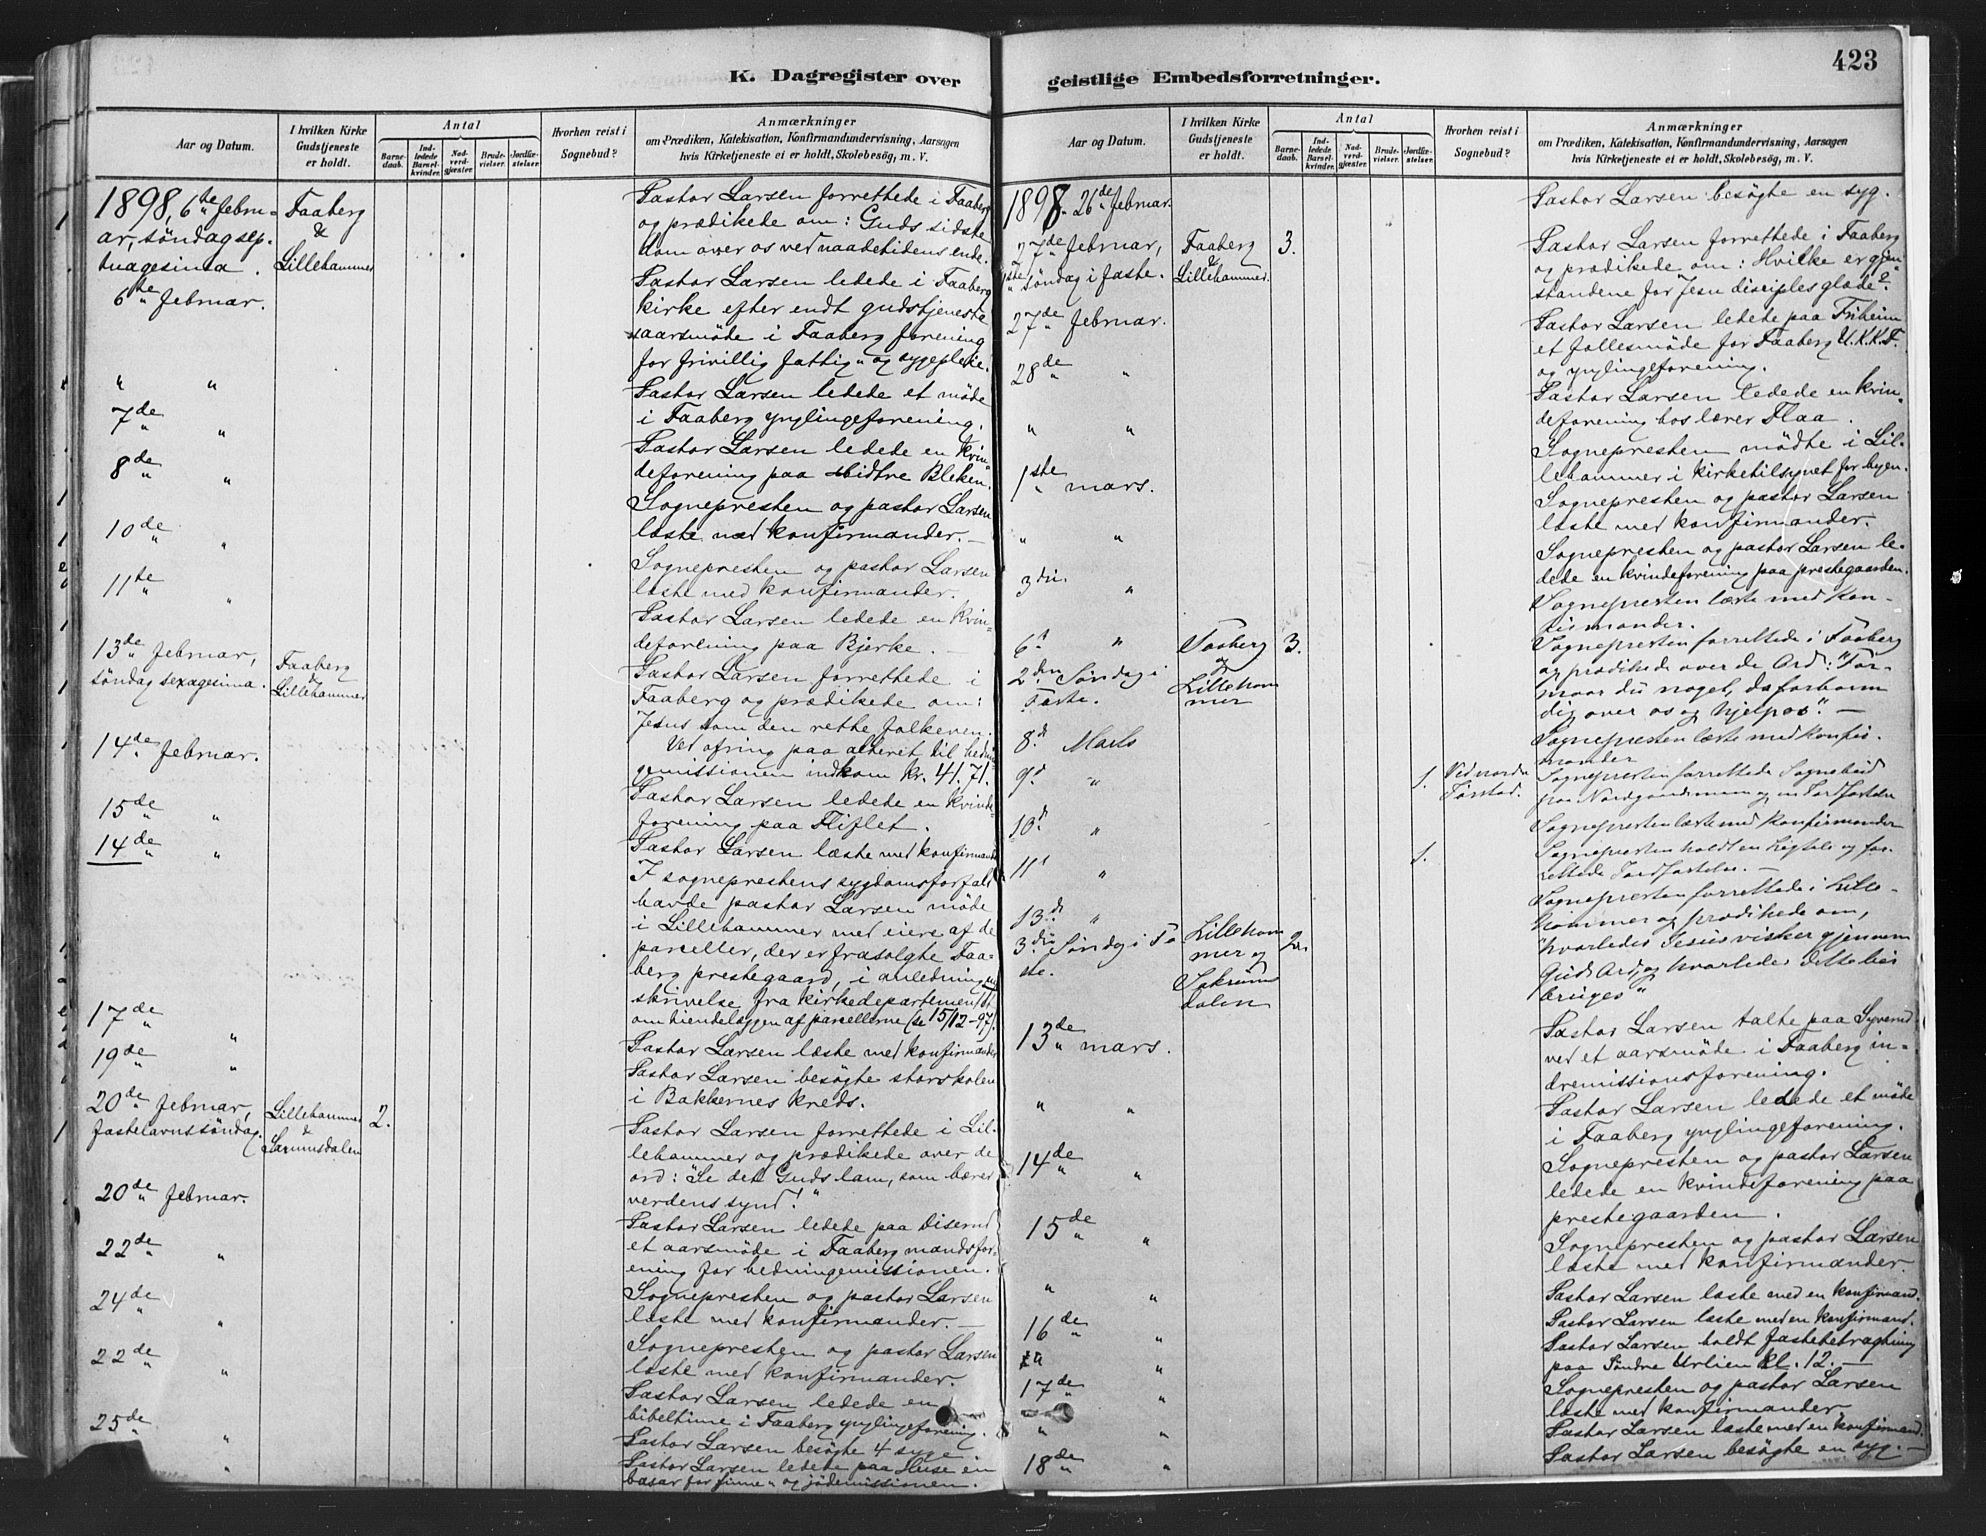 K. Dagregister over
Aar og Datum.
I hvilken Kirke Gudstjeneste er holdt.
Antal
Barnedaab.
Indledede Barselkvinder.
Nadverdgjæster.
Brudevielser.
Jordfæstelser.
Hvorhen reist i Sognebud?
Anmærkninger
om Prædiken, Katekisation, Konfirmandundervisning, Aarsagen
hvis Kirketjeneste ei er holdt, Skolebesög, m. V.
1898, 6te febru-
ar, söndag sep-
tuagesima.
Faaberg
&
Lillehammer
Pastor Larsen forrettede i Faaberg
og prædikede om: Guds sidste
dom over os ved naadetidens ende.
6de februar.
Pastor Larsen ledede i Faaberg
kirke efter endt gudstjeneste
aarsmöde i Faaberg forening
for frivillig fattig- og sygepleie.
" "
Pastor Larsen ledede et möde
i Faaberg ynglingeforening.
7de "
Pastor Larsen ledede en kvin-
deforening paa Bleken.
8de "
Sognepresten og pastor Larsen
læste med konfirmander.
10de "
Sognepresten og pastor Larsen
læste med konfirmander.
11te "
Pastor Larsen ledede en kvin-
deforening paa Bjerke.
13de februar,
söndag sexagesima.
Faaberg
&
Lillehammer
Pastor Larsen forrettede i
Faaberg og prædikede om:
Jesus som den rette
Ved ofring paa alteret til hednin
gemissionen indkom kr. 41.71.
14de februar.
Pastor Larsen ledede en kvinde
forening paa Fliflet.
15de "
Pastor Larsen læste med konfirmander
14de "
I sogneprestens sygdomsforfald
havde pastor Larsen möde
i Lillehammer med eiere af de
parceller, der er frasolgte Faa-
berg prestegaard, i anledning
skrivelse fra kirkedepartementet
om af parcellerne (se 15/12-97).
17de "
Pastor Larsen læste med konfirmander
19de "
Pastor Larsen besögte storskolen
i Bakkernes kreds.
20de februar,
fastelavnssöndag.
Lillehammer
&
Saxumsdalen
2.
Pastor Larsen forrettede i Lil-
lehammer og prædikede over de
ord: "Se det Guds lam, som bærer
verdens synd!"
20de februar.
Pastor Larsen ledede paa Diserud
et aarsmöde i Faaberg mandsfor-
ening for hedningemissionen.
22de "
Sognepresten og pastor Larsen
læste med konfirmander.
24de "
Sognepresten og pastor Larsen
læste med konfirmander.
22de "
Pastor Larsen ledede en
bibeltime i Faaberg ynglingeforening.
25de "
Pastor Larsen besögte 4 syge
"
Pastor Larsen ledede paa Huse en
basar for finne- og jödemissionen.
geistlige Embedsforretninger.
423
Aar og Datum.
I hvilken Kirke Gudstjeneste er holdt.
Antal
Barnedaab.
Indledede Barselkvinder.
Nadverdgjæster.
Brudevielser.
Jordfæstelser.
Hvorhen reist i Sognebud?
Anmærkninger
om Prædiken, Katekisation, Konfirmandundervisning, Aarsagen
hvis Kirketjeneste ei er holdt, Skolebesög, m. V.
1898. 26de februar.
Pastor Larsen besögte en syg.
27de februar,
1ste söndag i faste.
Faaberg
&
Lillehammer.
3.
Pastor Larsen forrettede i Faaberg
og prædikede om: Hvilke er gjen-
standene for Jesu disciples glæde?
27de februar.
Pastor Larsen ledede paa Friheim
et fællesmöde for Faaberg U.K.K.F.
og ynglingeforening.
28de "
Pastor Larsen ledede en kvin-
deforening hos lærer Flaa.
" "
Sognepresten mödte i Lil-
lehammer i kirketilsynet for byen.
1ste mars.
Sognepresten og pastor Larsen
læste med konfirmander.
" "
Sognepresten og pastor Larsen le-
dede en kvindeforening paa prestegaarden.
3die "
Sognepresten læste med kon-
firmander.
6te "
2den Söndag i
Faste.
Faaberg
og
Lilleham
mer
3.
Sognepresten forrettede i Faaberg
og prædikede over de Ord: "For-
maar du noget, da forbarm
dig over os og hjelp os". —
8de Marts
Sognepresten læste med konfir-
mander
9de "
1.
Sognepresten forrettede Sognebud
paa og en Jordfæstelse
10de "
Sognepresten læste med konfirmander
11te "
1.
Sognepresten holdt en Ligtale og for-
rettede Jordfæstelse. —
13de "
3die Söndag i Fa
ste.
Lilleham
mer og
Saksum
dalen
2.
Sognepresten forrettede i Lille-
hammer og prædikede om,
"hvorledes Jesus virker gjennem
Guds Ord, og hvorledes dette bör
bruges"
13de mars.
Pastor Larsen talte paa
ved et aarsmöde i Faaberg in-
dremissionsforening.
" "
Pastor Larsen ledede et möde
i Faaberg ynglingeforening.
14de "
Sognepresten og pastor Larsen
ledede en kvindeforening paa
prestegaarden.
15de "
Sognepresten og pastor Larsen
læste med konfirmander.
" "
Pastor Larsen læste med en konfirmand.
16de "
Pastor Larsen læste med en konfirmand.
"
Pastor Larsen holdt fastebetragtning
paa Söndre Urlien kl. 12. —
17de "
Sognepresten og pastor Larsen
læste med konfirmander
" "
Pastor Larsen læste med en konfirmand.
18de "
Pastor Larsen besögte en syg. —